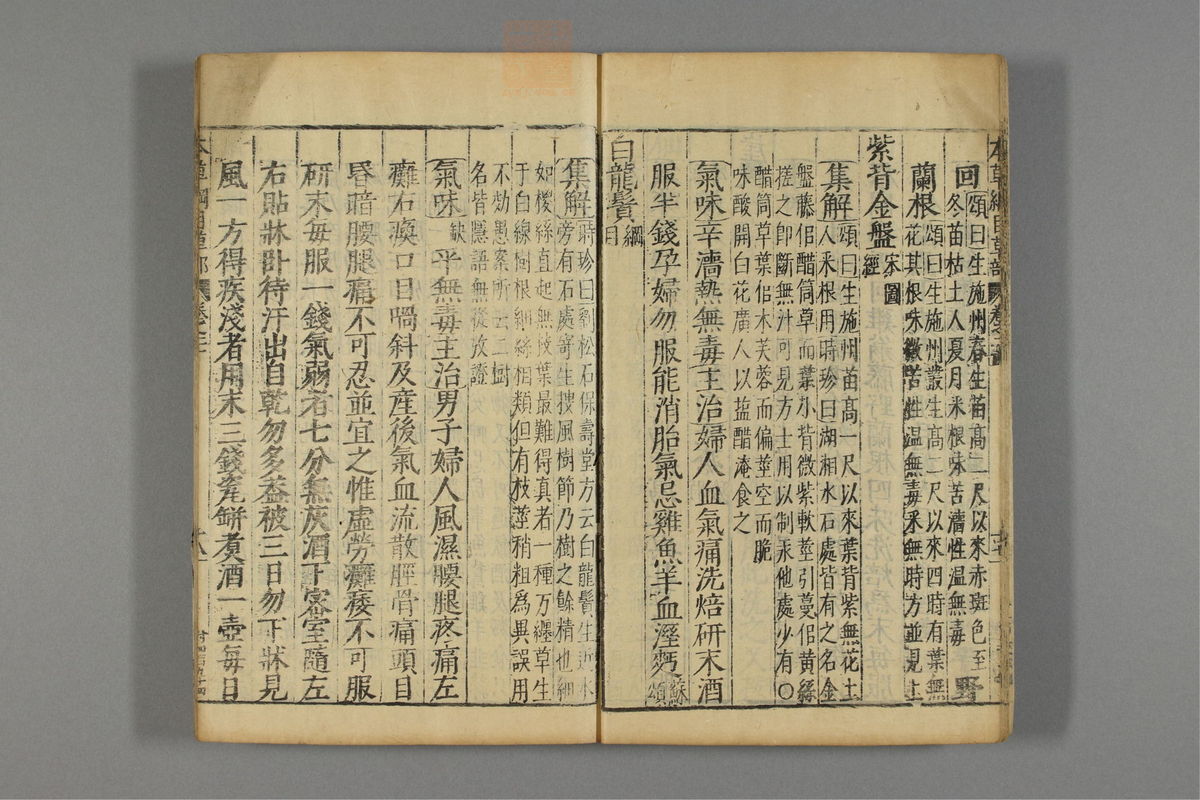 回頌曰生施州春生苗高一尺以來赤斑色至
冬苗枯土人夏月采根味苦濇性温無毒
野
蘭根頌曰生施州叢生高二尺以來四時有葉無
花其根味微苦性温無毒采無時方並見上
紫背金盤宋圖經
集解頌曰生施州苗高一尺以來葉背紫無花土
人采根用時珍曰湖湘水石處皆有之名金
盤藤佀醋筒草而葉小背微紫軟莖引蔓佀黄絲
搓之即斷無汁可見方士用以制汞他處少有○
醋筒草葉佀木芙蓉而偏莖空而脆
味酸開白花廣人以鹽醋淹食之
氣味辛濇熱無毒主治婦人血氣痛洗焙研末酒
服半錢孕婦勿服能消胎氣忌雞魚羊血溼麪蘇頌
白龍鬚綱目
集解時珍曰劉松石保壽堂方云白龍鬚生近水
旁有石處寄生搜風樹節乃樹之餘精也細
如椶絲直起無枝葉最難得真者一種万纏草生
于白線樹根細絲相類但有枝莖稍粗爲異誤用
不效愚案所云二樹
名皆隱語無從攷證
氣味缺平無毒主治男子婦人風濕腰腿疼痛左
癱右瘓口目喎斜及産後氣血流散脛骨痛頭目
昏暗腰腿痛不可忍並宜之惟虛勞癱痿不可服
研末每服一錢氣弱者七分無灰酒下密室隨左
右貼牀卧待汗出自乾勿多葢被三日勿下牀見
風一方得疾淺者用末三錢瓷缾煮酒一壺每日